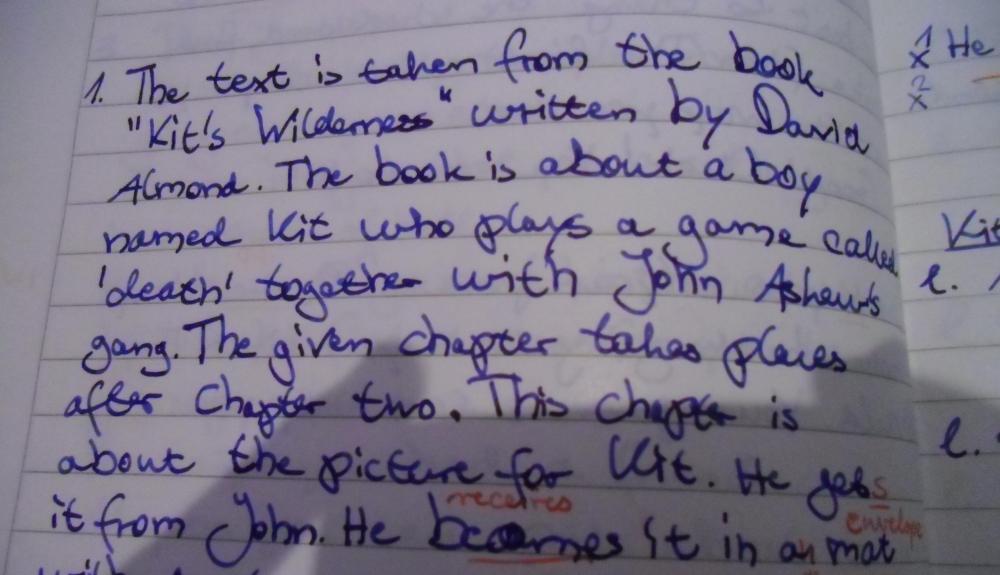 1. The text is taken from the book
"Kit's Wilderness" written by David
Almond. The book is about a boy
named Kit who plays a game called
'death' together with John Askew's
gang. The given chapter takes places
after Chapter two. This chapter is
about the picture for Kit. He gets
it from John. He becomes it in an mat
receives
s
envelope
1 He
x
2
x
Kit
l.
l.